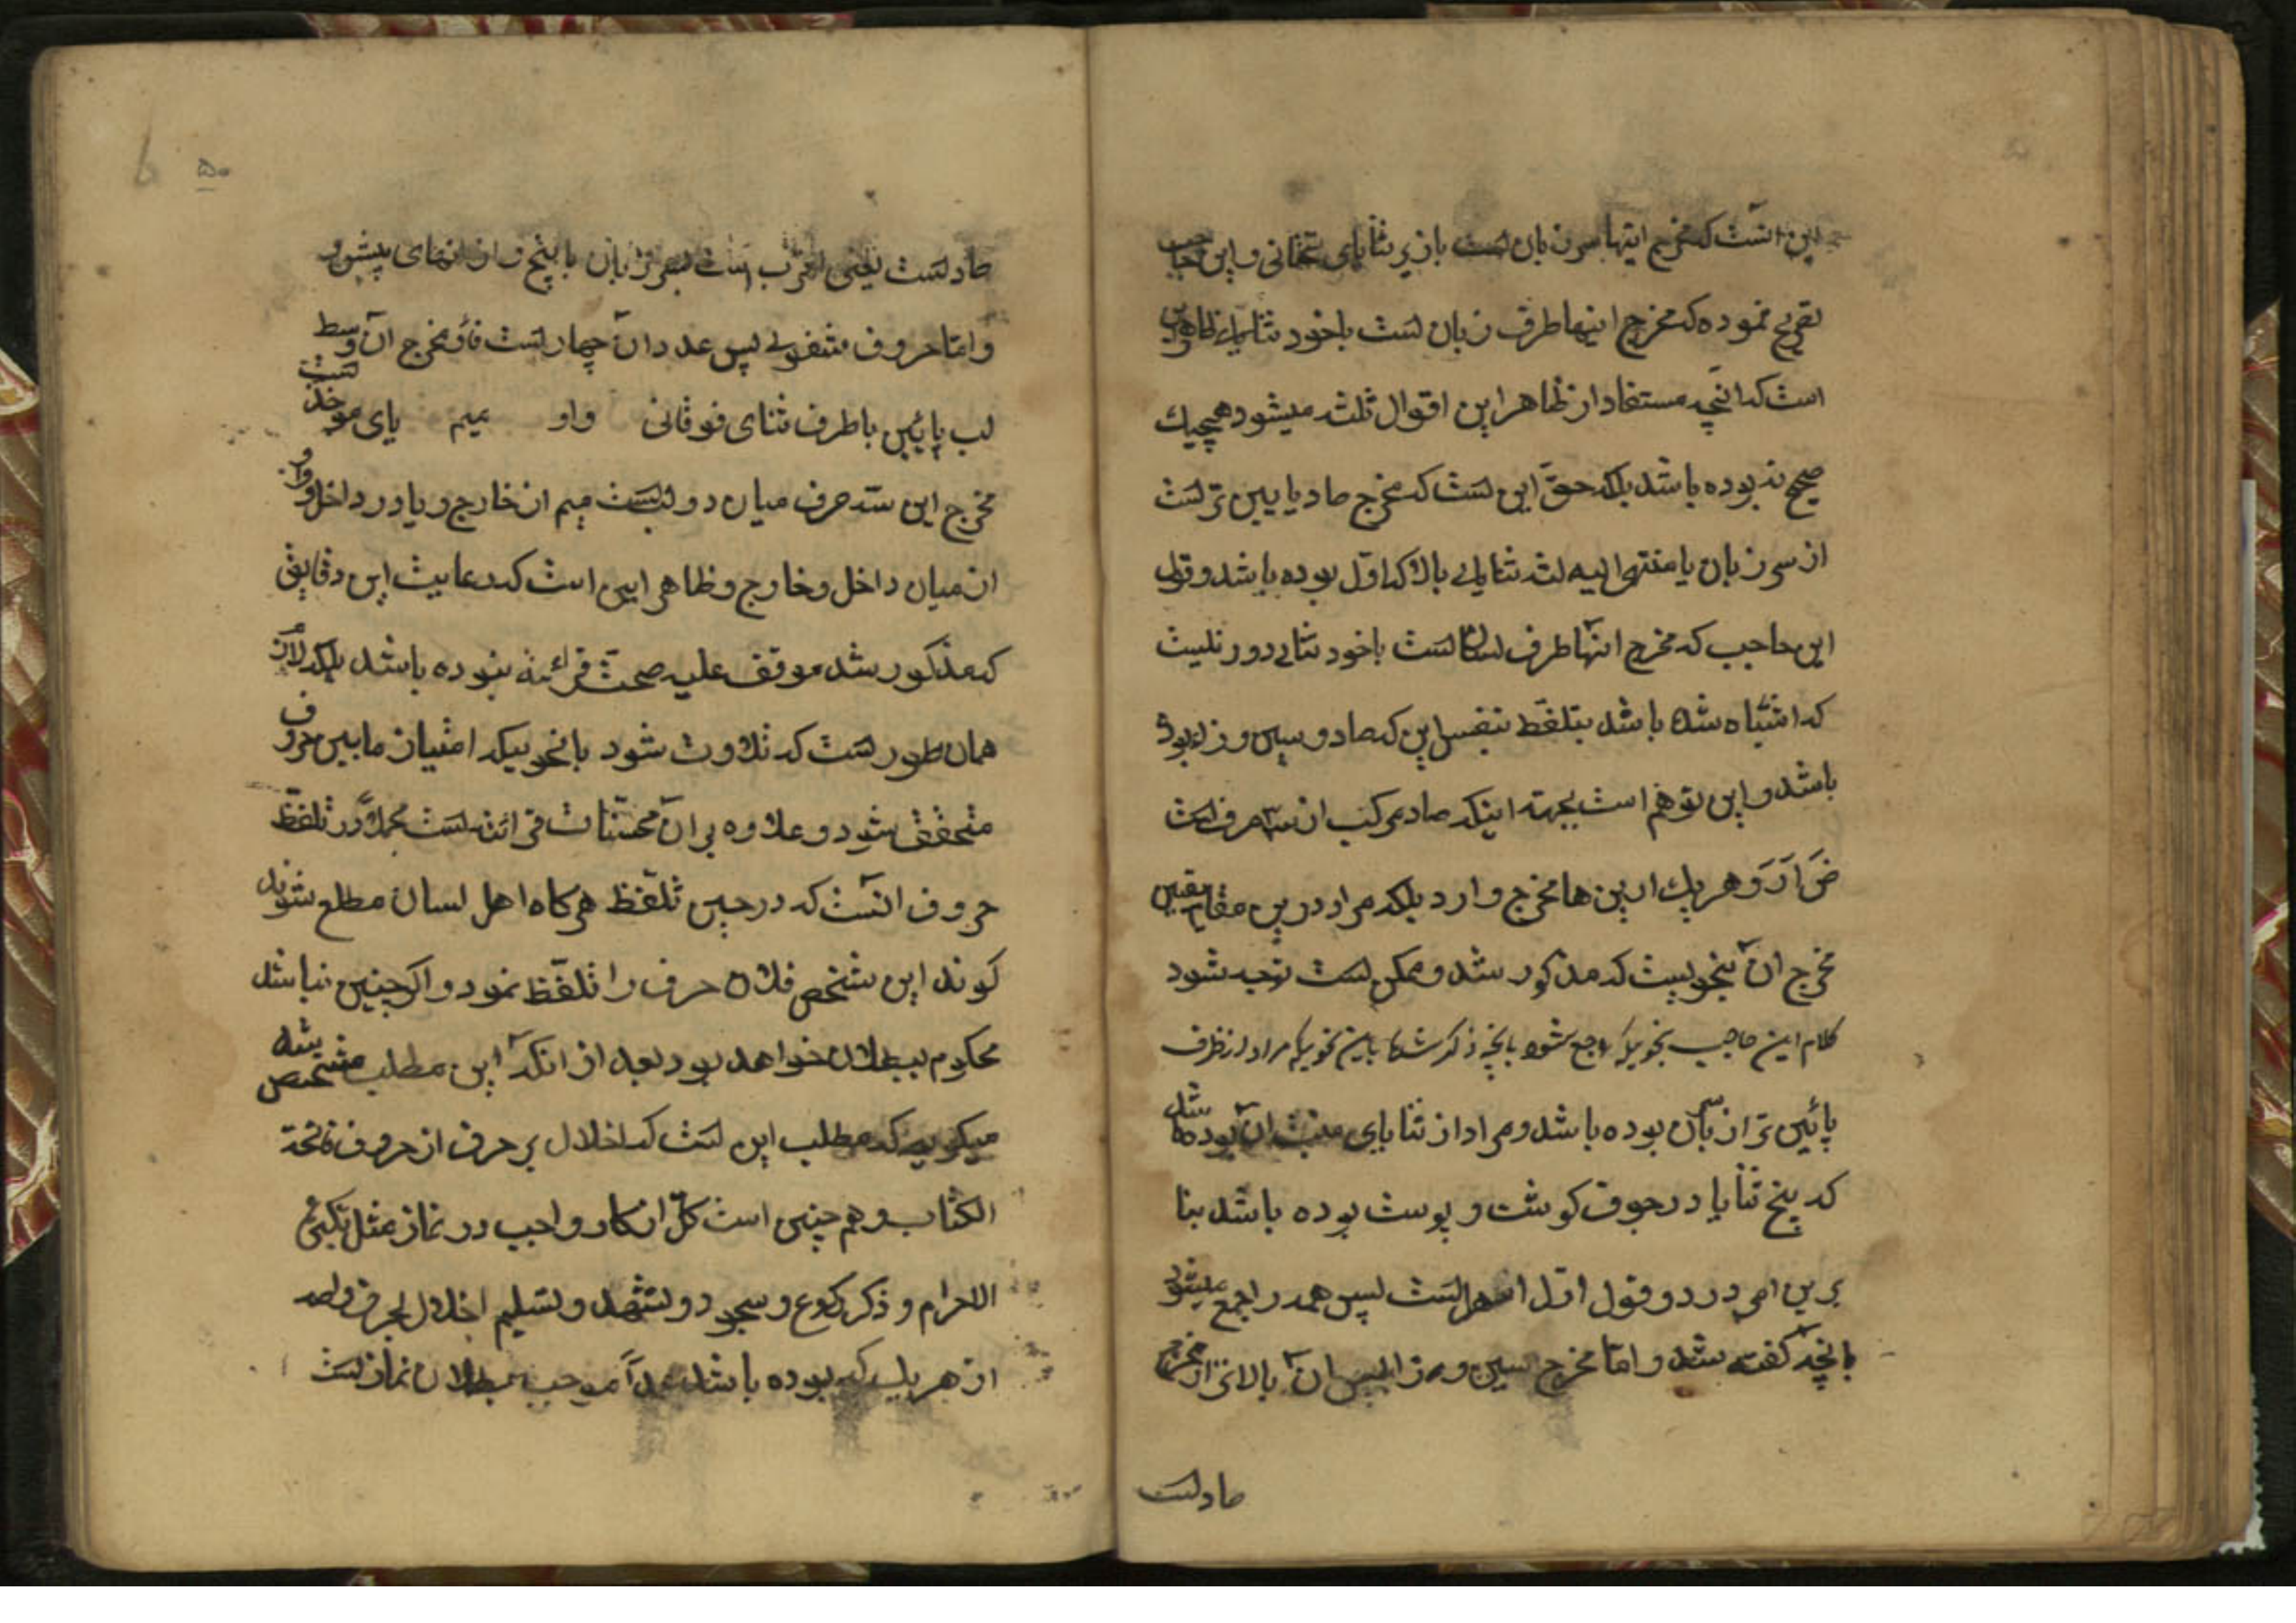 این است که مخرج اینها سر زبان است با زیر ثنایای تحتانی و ابن حاجب
تصریح نموده که مخرج اینها طرف زبان است با خود ثنایا و ظاهر
است که انچه مستفاد از ظاهر این اقوال ثلثه میشود هیچیك
صحیح نه بوده باشد بلکه حق این است که مخرج صاد پایین تر است
از سر زبان یا منتهی الیه لثه ثنایای بالا که اول بوده باشد و قول
ابن حاجب که مخرج انها طرف لسان است با خود ثنایا دور نیست
که اشتباه شده باشد بتلفظ بنفس این که صاد و سین و زا بوده
باشد و این توهم است بجهته اینکه صاد مرکب از سه حرف است
صَ اَ دَ و هر یك از ین ها مخرج دارد بلکه مراد درین مقام تعیین
مخرج ان بنحویست که مذکور شد و ممکن است توجیه شود
کلام ابن حاجب بنحویکه راجع بشود بانچه ذکر شد باین نحویکه مراد از طرف
پائین تر از سر ان بوده باشد و مراد از ثنایای منبت ان بوده باشد
که بیخ ثنایا در جوف کوشت و پوست بوده باشد بنا
برین امر در دو قول اول اسهل است پس همه راجع میشود
بانچه کفته شد و اما مخرج سین و زا پس ان بالاتر از مخرج
صاد است
صاد است یعنی اقرب است بسر زبان با بیخ و از انهای پیشین
و اما حروف شفوی پس عدد ان چهار است فا و مخرج ان وسط
لب پایین با طرف ثنای فوقانی واو میم بای موحده است
مخرج این سه حرف میان دو لب است میم از خارج و با در داخل و واو
از میان داخل و خارج و ظاهر این است که رعایت این دقایق
که مذکور شد موقف علیه صحت قرائته نبوده باشد بلکه لازم
همان طور است که تلاوت شود بانحویکه امتیاز مابین حروف
متحقق شود و علاوه بر ان محسنات قرائت است مجملا در تلفظ
حروف انست که در حین تلفظ هرکاه اهل لسان مطلع شوند
کویند این شخص فلان حرف را تلفظ نمود و اکر چنین نباشد
محکوم ببطلان خواهد بود بعد از انکه این مطلب مشخص شد
میکویم که مطلب این است که اخلال بر حرف از حروف فاتحة
الکتاب و هم چنین است کل اذکار واجب در نماز مثل تکبیرة
الاحرام و ذکر رکوع و سجود و تشهد و تسلیم اخلال بحرف واحد
از هر یك که بوده باشد عمداً موجب بطلان نماز است
۵۰